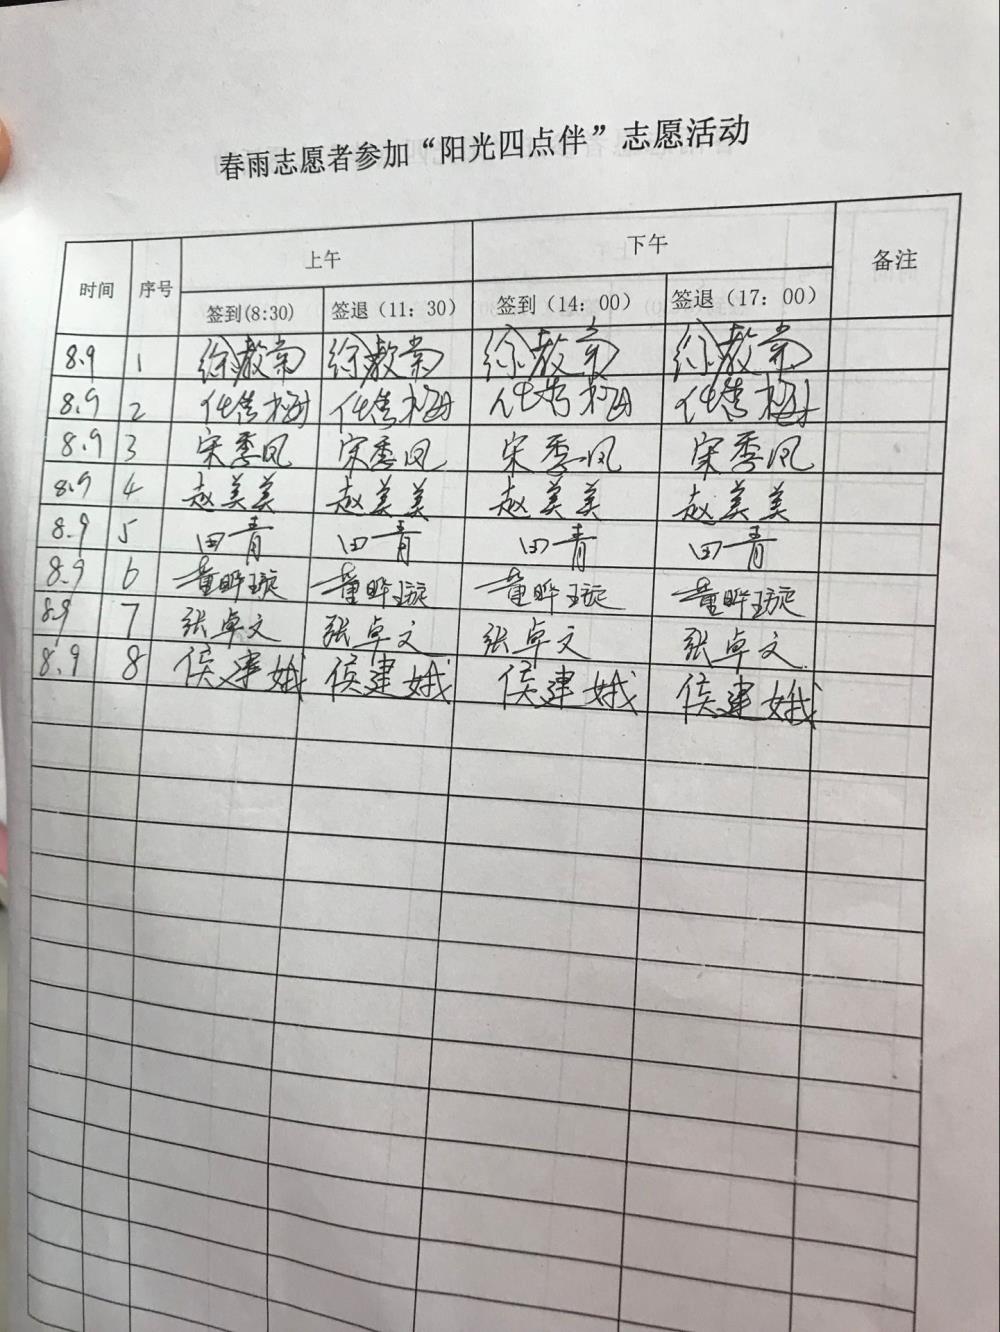 春雨志愿者参加“阳光四点伴”志愿活动
时间 序号 上午 下午 备注
签到(8:30) 签退（11：30） 签到（14：00） 签退（17：00）
8.9 1 徐教常 徐教常 徐教常 徐教常
8.9 2
8.9 3 宋季凤 宋季凤 宋季凤 宋季凤
8.9 4 赵美美 赵美美 赵美美 赵美美
8.9 5 田青 田青 田青 田青
8.9 6 童晔璇 童晔璇 童晔璇 童晔璇
8.9 7 张卓文 张卓文 张卓文 张卓文
8.9 8 侯建娥 侯建娥 侯建娥 侯建娥